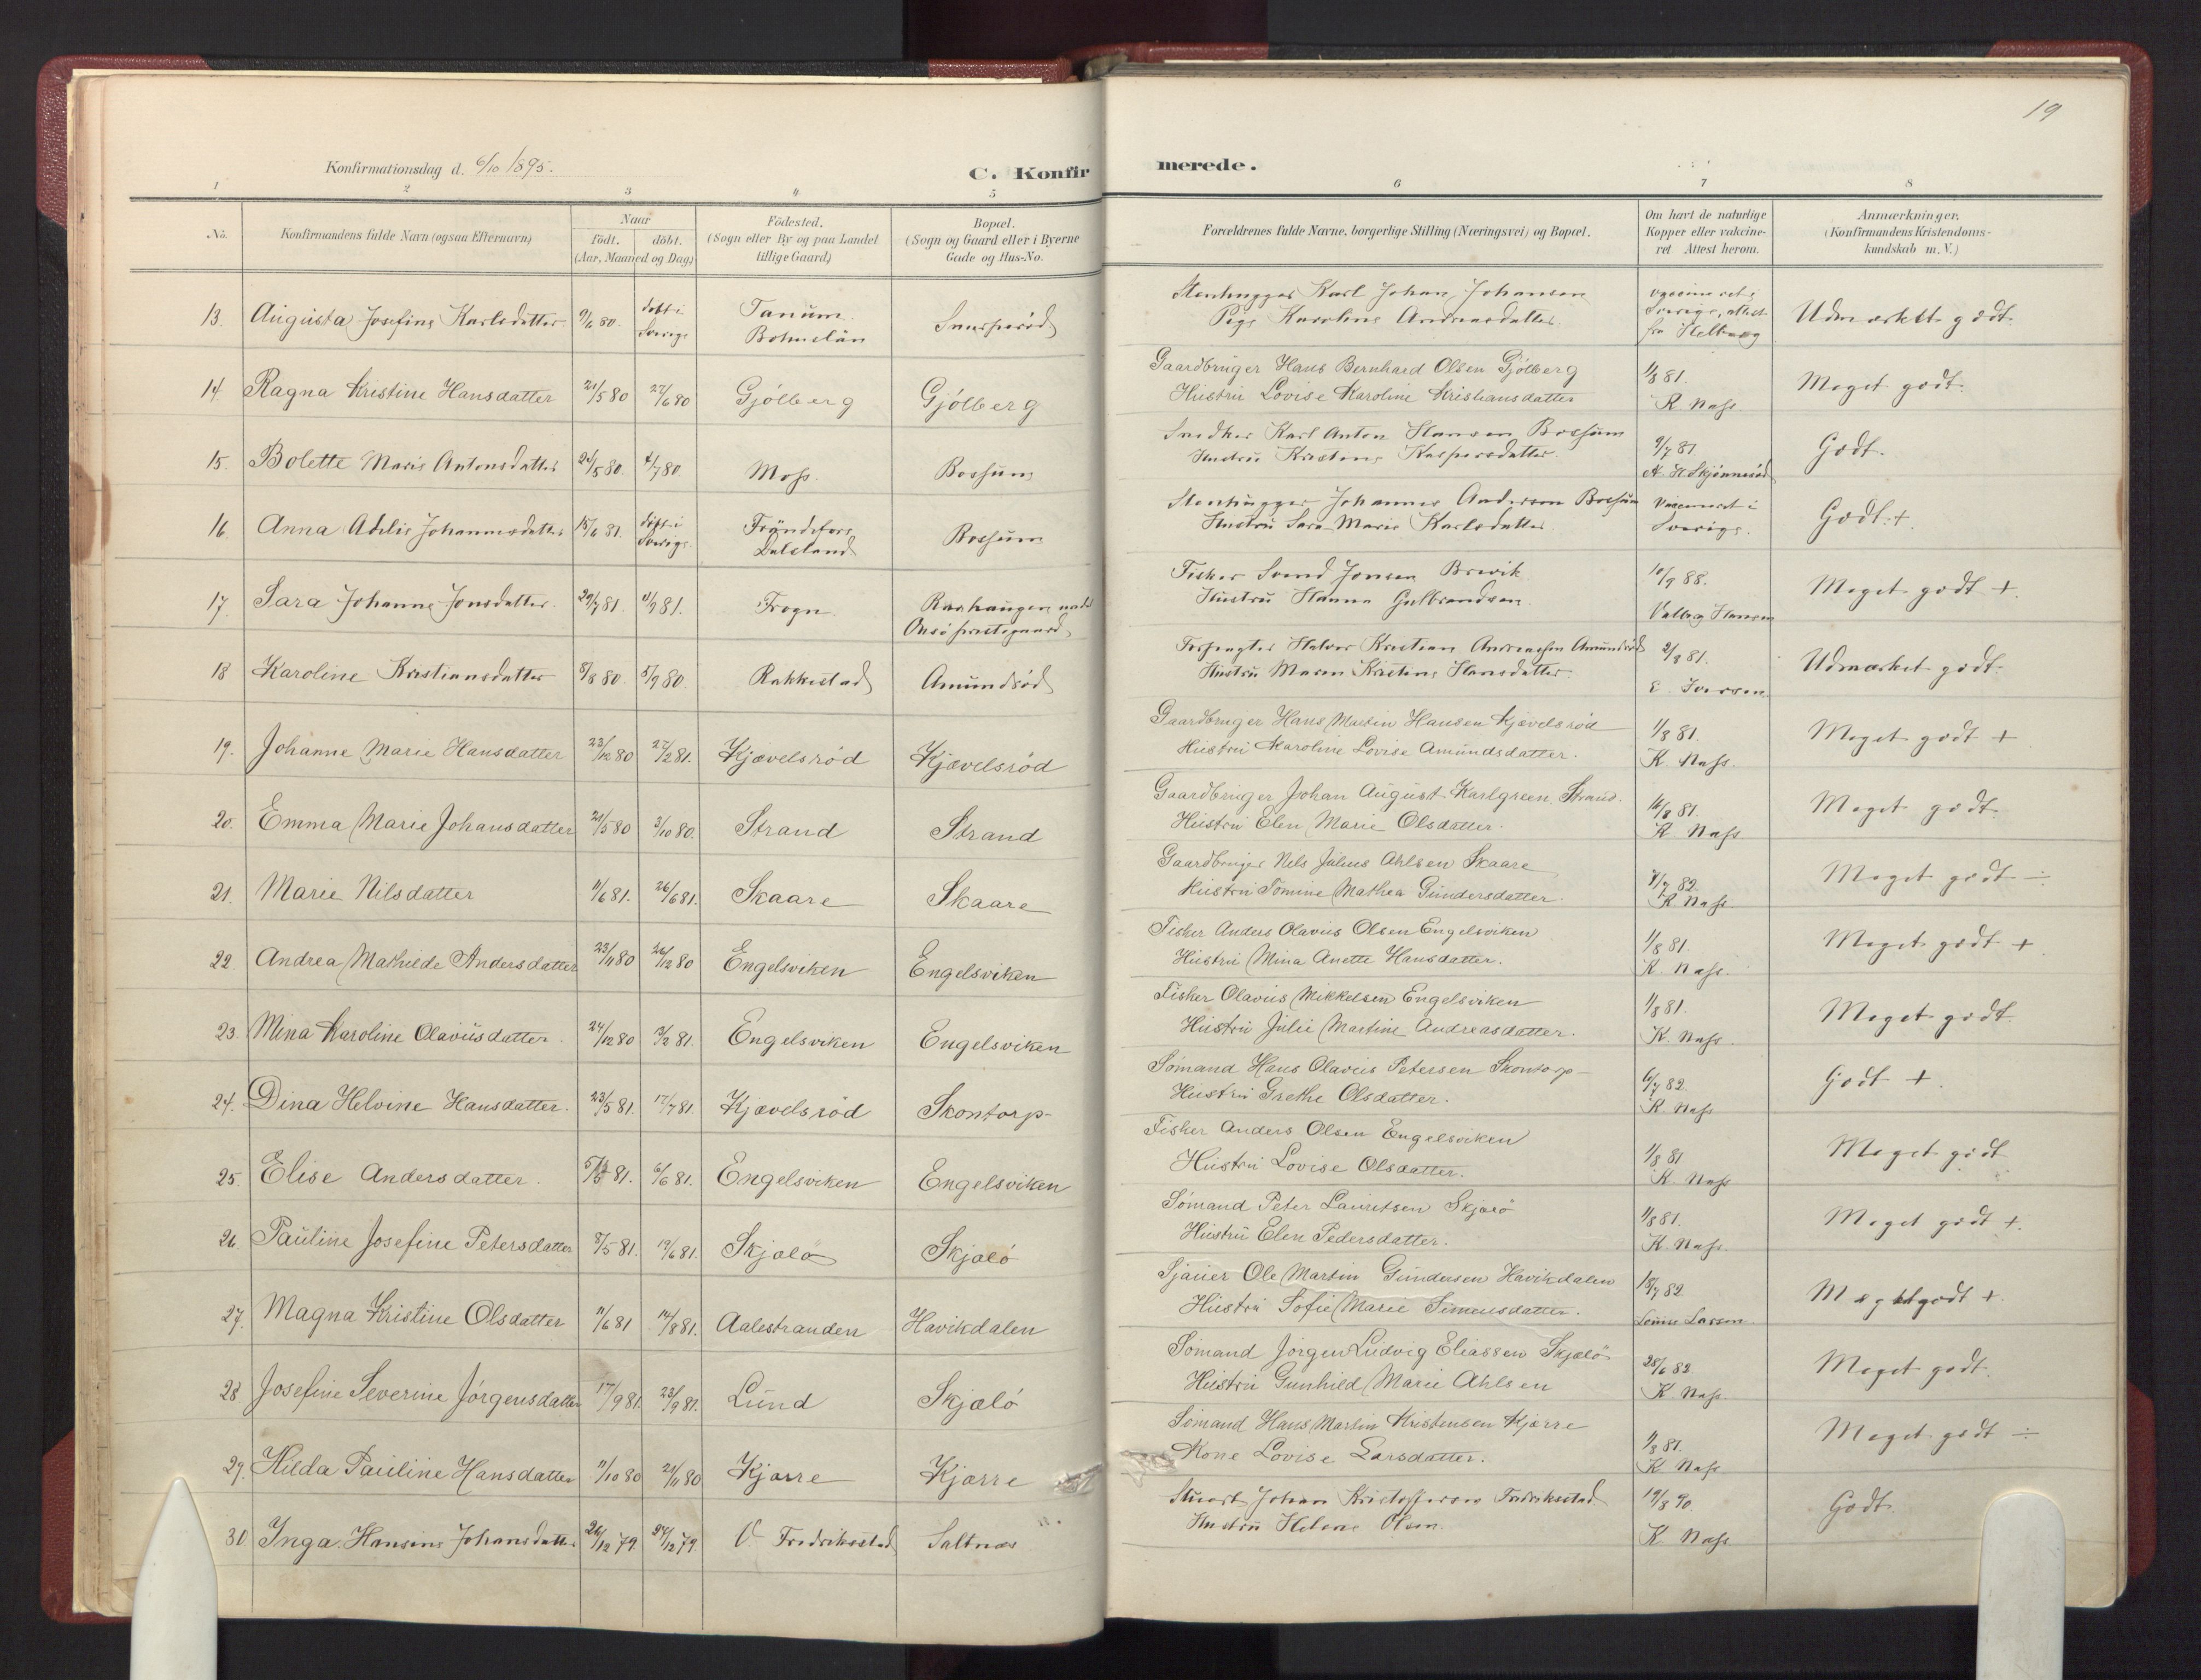 19
Konfirmationsdag d. 6/10 1895.
C. Konfirmerede.
1 2 3 4 5 6 7 8
No.
Konfirmandens fulde Navn (ogsaa Efternavn)
Naar
født. døbt.
(Aar, Maaned og Dag)
Fødested.
(Sogn eller By og paa Landet
tillige Gaard)
Bopæl.
(Sogn og Gaard eller i Byerne
Gade og Hus-No.
Forældrenes fulde Navne, borgerlige Stilling (Næringsvei) og Bopæl.
Om havt de naturlige
Kopper eller vakcine-
ret Attest herom.
Anmærkninger.
(Konfirmandens Kristendoms-
kundskab m. V.)
13. Augusta Josefine Karlsdatter 9/6 80. døbt i Sverige Tanum Bohuslän
Stenhugger Karl Johan Johansen
Pige Karoline Andreasdatter
vaccineret i Sverige, attest fra Udmærket godt
14. Ragna Kristine Hansdatter 21/5 80 27/6 80 Gjølberg Gjølberg
Gaardbruger Hans Bernhard Olsen Gjølberg
Hustru Lovise Karoline Kristiansdatter
1/8 81. K. Næss. Meget godt.
15. Bolette Marie Antonsdatter /5 80. 4/7 80. Moss. Bossum
Snedker Karl Anton Hansen Bossum
Hustru Kristine Kaspersdatter.
9/7 81 Skjønnerød Godt.
16. Anna Adelie Johannesdatter 15/6 81. døbt i Sverige. Dalsland Bossum
Stenhugger Johannes Anderson Bossum
Hustru Sara Marie Karlsdatter
Vaccineret i Sverige. Godt. +
17. Sara Johanne Jonsdatter. 29/7 81. /9 81. Frogn. Onsø prestegaard
Fisker Svend Jonsen Brevik
Hustru Hanna Gulbrandsen
10/9 88. Valborg Hansen Meget godt +.
18 Karoline Kristiansdatter 8/8 80. 5/9 80. Rakkestad Amundrød
Forpagter Halvor Kristian Andreassen Amundrød
Hustru Maren Kristine Hansdatter.
2/8 81. E. Iversen. Udmærket godt.
19. Johanne Marie Hansdatter 23/12 80 27/2 81. Kjævelsrød Kjævelsrød
Gaardbruger Hans Martin Hansen Kjævelsrød
Hustru Karoline Lovise Amundsdatter.
1/8 81. K. Næss. Meget godt +
20. Emma Marie Johansdatter 21/5 80 3/10 80. Strand Strand
Gaardbruger Johan August Karlgreen, Strand.
Hustru Elen Marie Olsdatter.
16/8 81. K. Næss Meget godt
21. Marie Nilsdatter 11/6 81. 26/6 81. Skaare Skaare
Gaardbruger Nels Julius Ahlsen Skaare
Hustru Tomine Mathea Gundersdatter.
7/7 82. K. Næss. Meget godt ÷
22. Andrea Mathilde Andersdatter 23/11 80 26/12 80 Engelsviken Engelsviken
Fisker Anders Olavus Olsen Engelsviken
Hustru Mina Anette Hansdatter.
1/8 81. K. Næss. Meget godt +
23. Mina Karoline Olavusdatter. 24/12 80 13/2 81. Engelsviken Engelsviken
Fisker Olavus Mikkelsen Engelsviken
Hustru Julie Martine Andreasdatter.
1/8 81. K. Næss. Meget godt.
24. Dina Helvine Hansdatter. 23/5 81. 17/7 81. Kjævelsrød Skontorp
Sømand Hans Olavus Petersen Skontorp
Hustru Grethe Olsdatter.
6/7 82. K. Næss Godt +.
25. Elise Andersdatter. 81. 6/6 81. Engelsviken Engelsviken
Fisker Anders Olsen Engelsviken
Hustru Lovise Olsdatter.
1/8 81 K. Næss Meget godt
26. Pauline Josefine Petersdatter 8/5 81. 19/6 81. Skjælø Skjælø
Sømand Peter Lauritsen Skjælø
Hustru Elen Pedersdatter.
1/8 81. K. Næss. Meget godt +.
27. Magna Kristine Olsdatter 11/6 81 14/8 81. Aalestranden Havikdalen
Sjauer Ole Martin Gundersen Havikdalen
Hustru Sofie Marie Simensdatter.
18/7 82. Larsen. Meget godt +
28. Josefine Severine Jørgensdatter 17/9 81. 23/9 81. Lund Skjælø
Sømand Jørgen Ludvig Eliassen Skjælø
Hustru Gunhild Marie Ahlsen
28/6 82. K. Næss. Meget godt.
29. Hilda Pauline Hansdatter 11/10 80 21/11 80 Kjærre Kjærre
Sømand Hans Martin Kristensen Kjærre
Kone Lovise Larsdatter.
1/8 81. K. Næss Meget godt ÷
30. Inga Hansine Johansdatter 26/12 79. /12 79. V. Fredriksstad Saltnæs
Stuert Johan Kristoffersen Fredriksstad
Hustru Helene Olsen.
19/8 90. K. Næss Godt